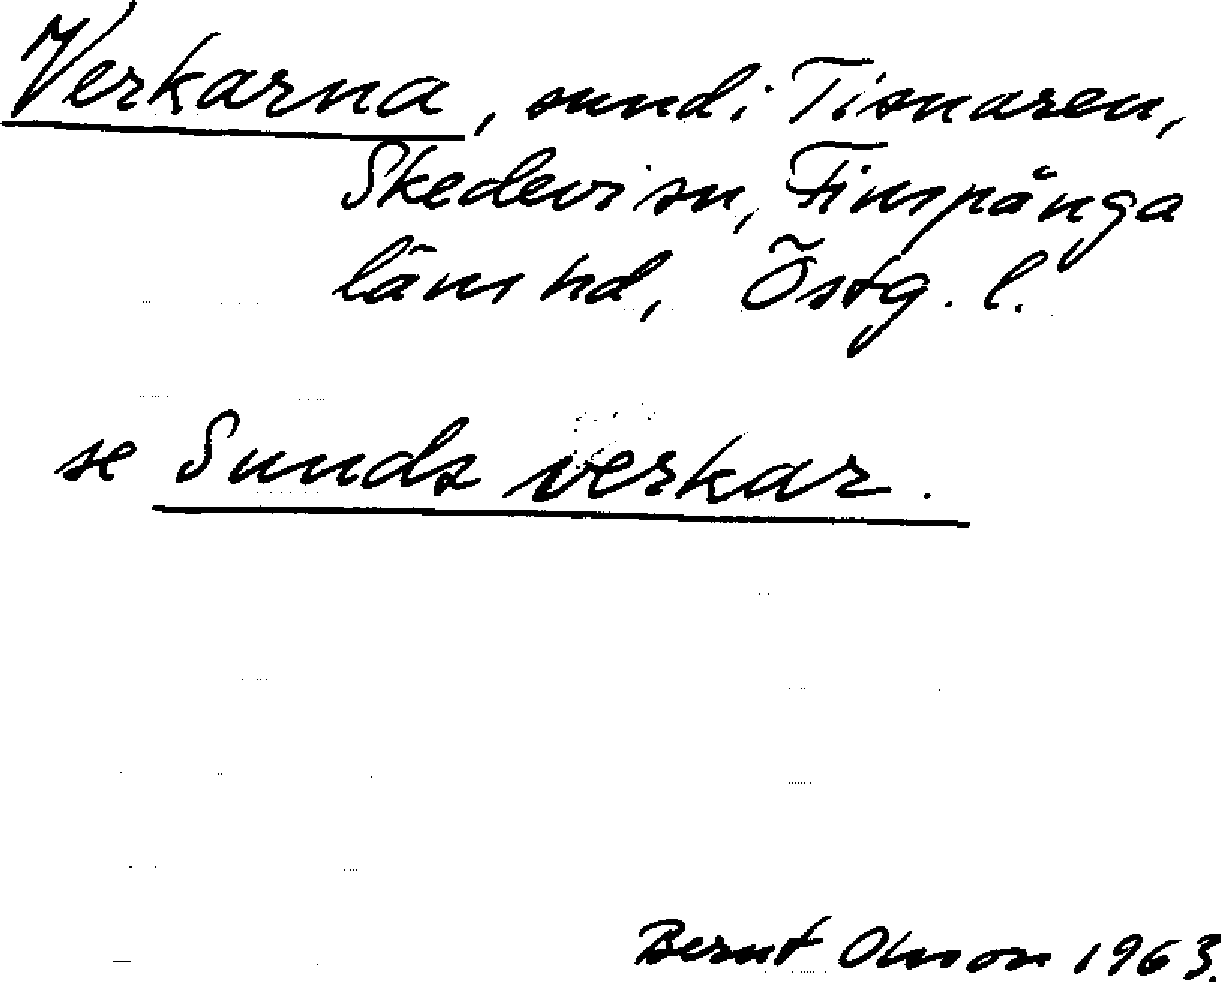 Verkarna, sund i Tisnaren,
Skedevi sn, Finspånga
läns hd, Östg. l.
se Sunds verkar.
Bernt Olsson 1963.